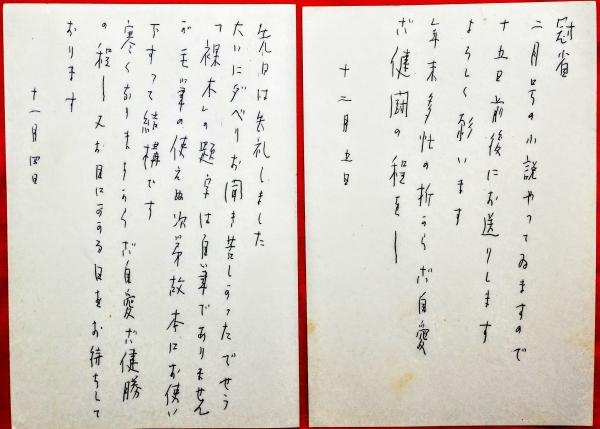 冠省
二月号の小説やつてゐますので
十五日前後にお送りします
よろしく願います
年末多忙の折からご自愛
ご健闘の程を―
十二月五日
先日は失礼しました
大いにダベりお聞き苦しかつたでせう
「裸木」の題字は自筆でありません
が毛筆の使えぬ次第故本にお使い
下すつて結構です
寒くなりますからご自愛ご健勝
の程― 又お目にかかる日をお待ちして
おります
十一月四日